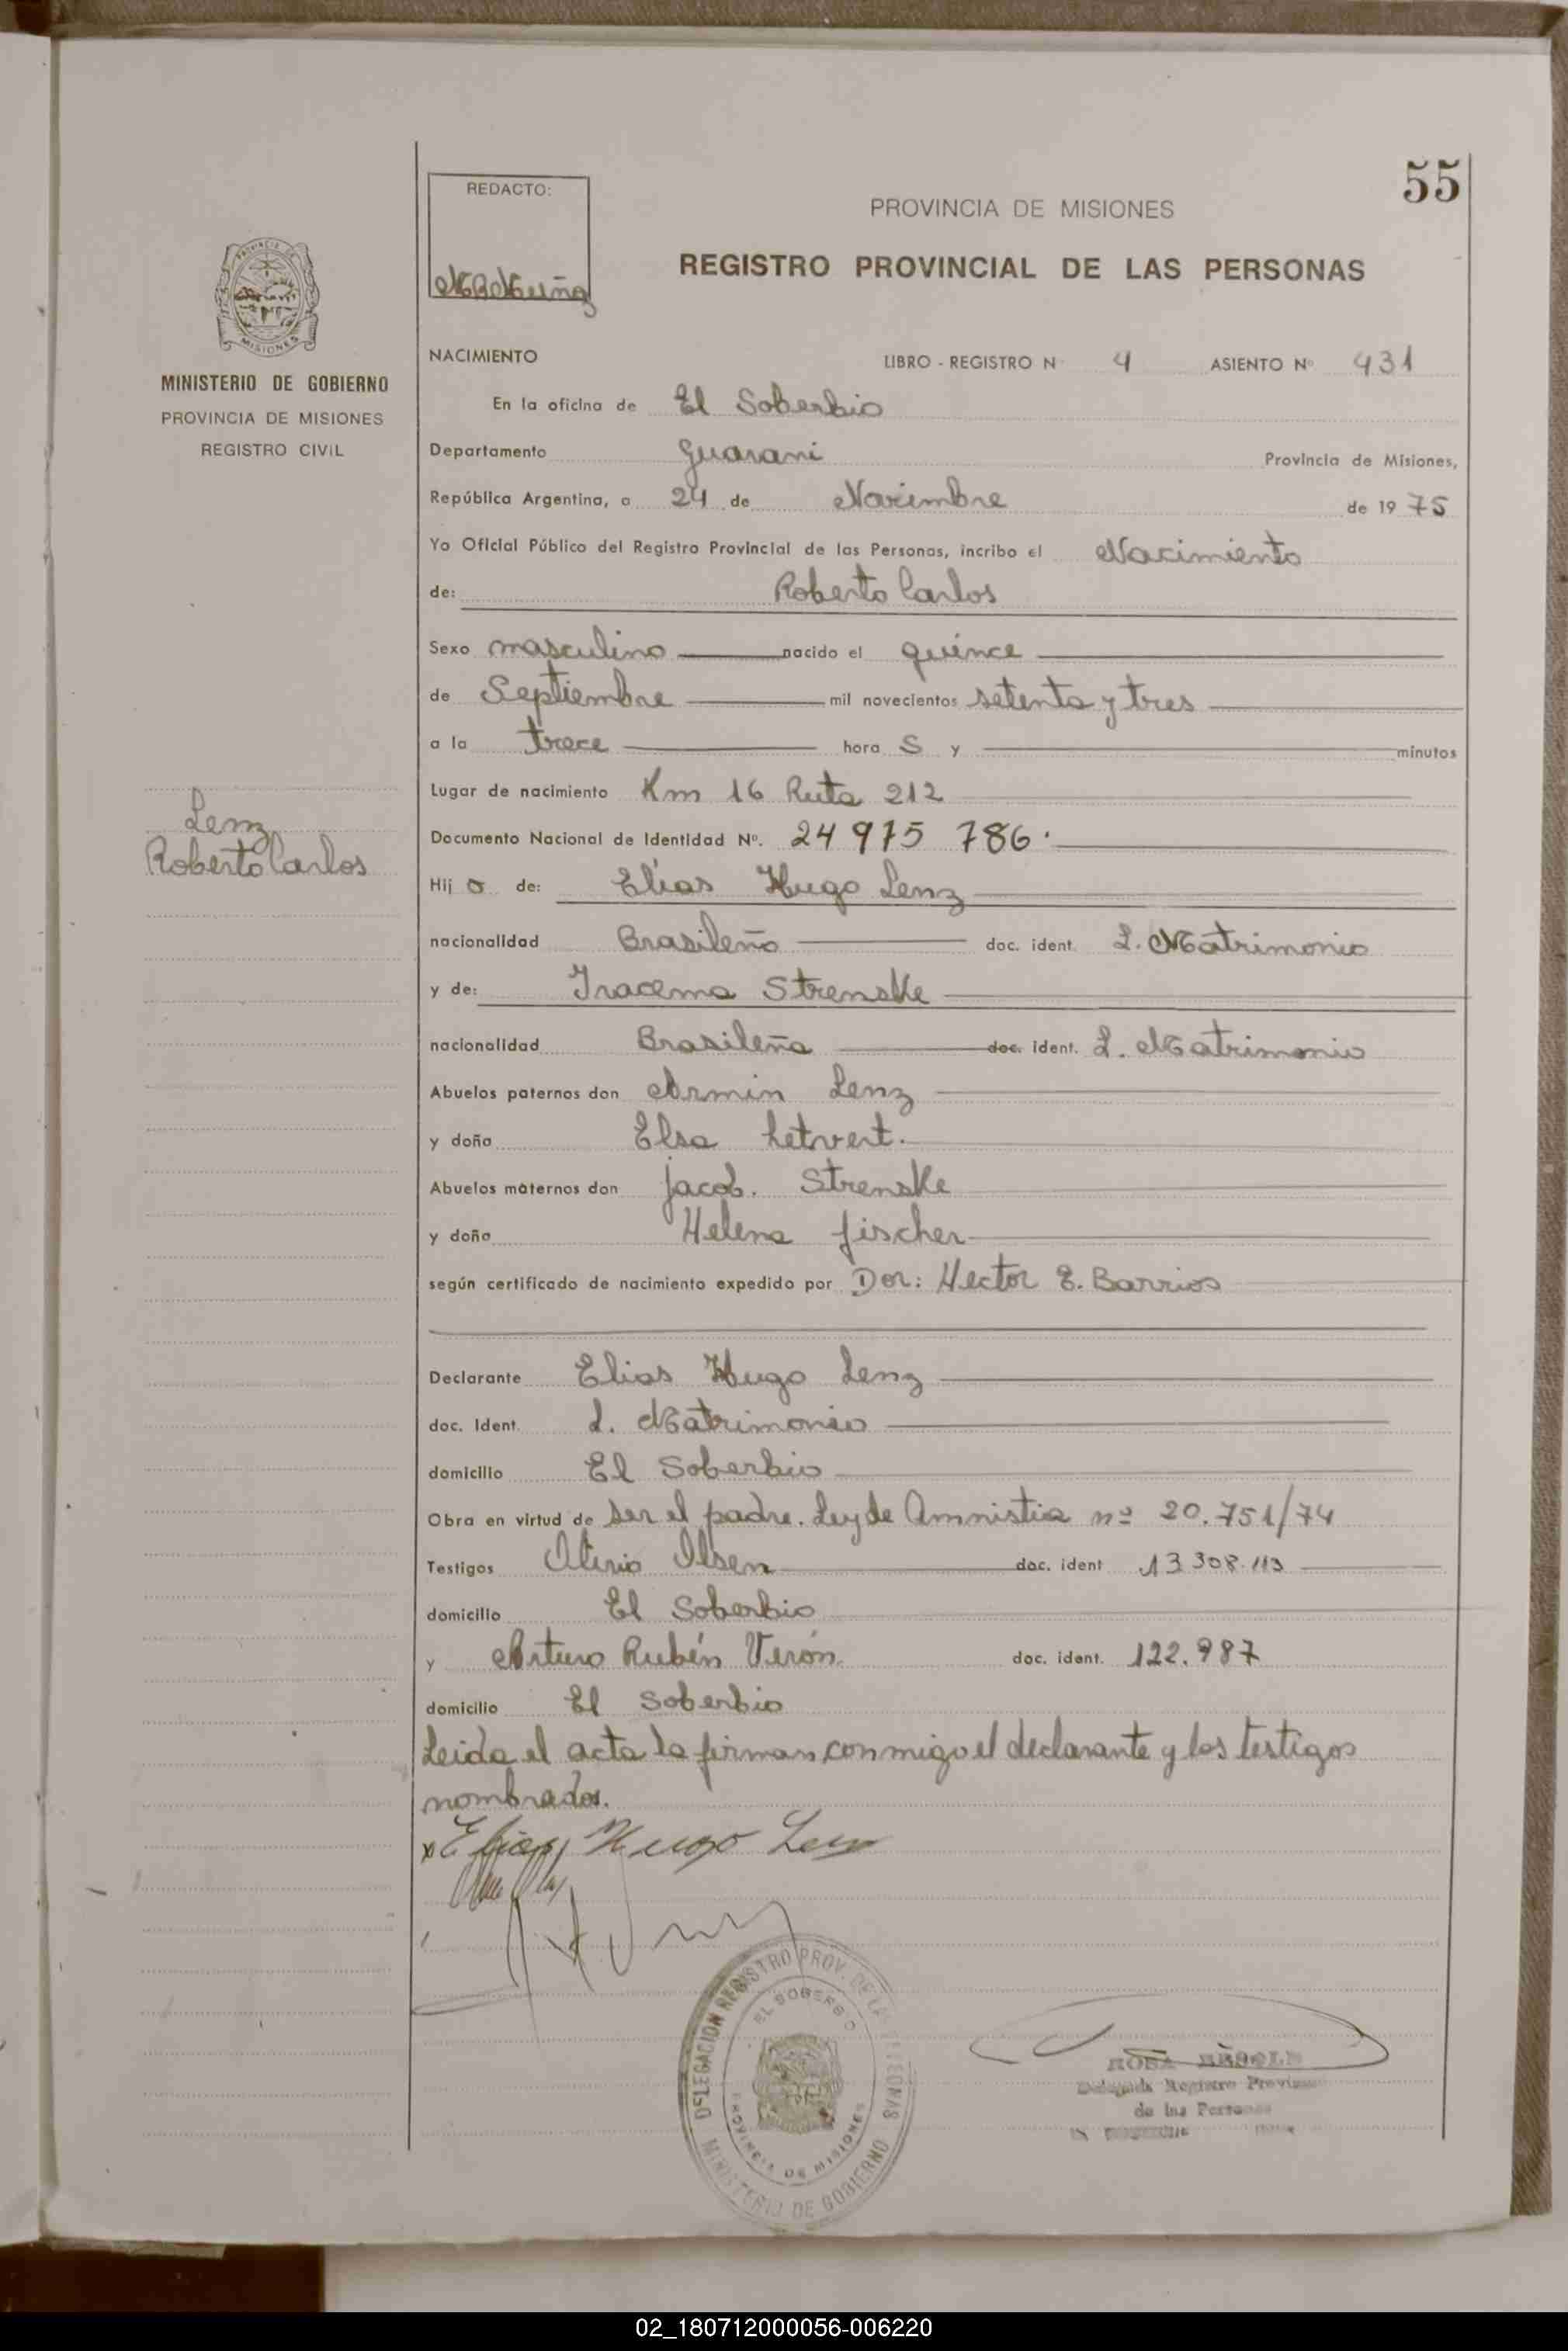 55
REDACTO:
PROVINCIA DE MISIONES
REGISTRO PROVINCIAL DE LAS PERSONAS
MISIONES
MINISTERIO DE GOBIERNO
PROVINCIA DE MISIONES
REGISTRO CIVIL
NACIMIENTO LIBRO - REGISTRO N 4 ASIENTO Nº 431
En la oficina de El Soberbio
Departamento Guarani Provincia de Misiones,
República Argentina, a 24 de Noviembre de 19 75
Yo Oficial Público del Registro Provincial de las Personas, incribo el Nacimiento
de: Roberto Carlos
Sexo masculino nacido el quince
de Septiembre mil novecientos setenta y tres
a la trece hora S y minutos
Lugar de nacimiento Km 16 Ruta 212
Lenz
Roberto Carlos
Documento Nacional de Identidad Nº. 24 975 786.
Hij o de: Elias Hugo Lenz
nacionalidad Brasileño doc. ident. L. Matrimonio
y de: Iracema Strenske
nacionalidad Brasileña doc. ident. L. Matrimonio
Abuelos paternos don Armin Lenz
y doña Elsa
Abuelos maternos don Jacob. Strenske
y doña Helena fischer
según certificado de nacimiento expedido por Dor: Hector E. Barrios
Declarante Elias Hugo Lenz
doc. Ident. L. Matrimonio
domicilio El Soberbio
Obra en virtud de ser el padre. Ley de Amnistia nº 20.751/74
Testigos Olsen doc. ident 13 308.113
domicilio El Soberbio
y Arturo Rubén Verón. doc. ident. 122.987
domicilio El Soberbio
Leida el acta la firman conmigo el declarante y los testigos
nombrados.
x Elias Hugo Lenz
DELEGACION REGISTRO PROV. DE LAS PERSONAS
EL SOBERBIO
PROVINCIA DE MISIONES
MINISTERIO DE GOBIERNO
ROSA
Delegada Registro Provincial
de las Personas
02_180712000056-006220